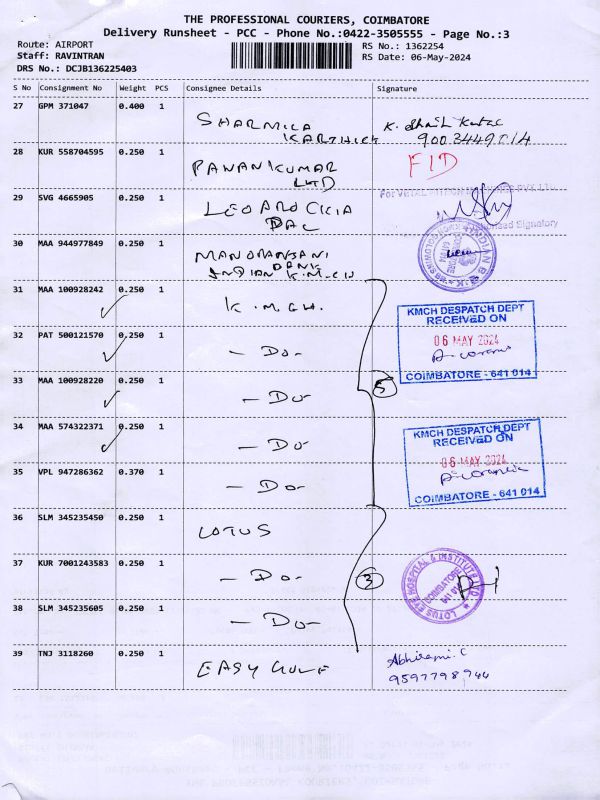 THE PROFESSIONAL COURIERS, COIMBATORE
Delivery Runsheet - PCC - Phone No.:0422-3505555 - Page No.:3
Route: AIRPORT
RS No.: 1362254
Staff: RAVINTRAN
RS Date: 06-May-2024
DRS No.: DCJB136225403
S No Consignment No Weight PCS Consignee Details Signature
27 GPM 371047 0.400 1
SHARMILA
KARTHICK
28 KUR 558704595 0.250 1
PAWAN KUMAR
FID
29 SVG 4665905 0.250 1
30 MAA 944977849 0.250 1
INDIAN BANK
31 MAA 100928242 0.250 1 K.M.C.H.
KMCH DESPATCH DEPT
RECEIVED ON
06 MAY 2024
COIMBATORE - 641 014
32 PAT 500121570 0.250 1 - Do -
33 MAA 100928220 0.250 1 - Do -
5
34 MAA 574322371 0.250 1 - Do -
KMCH DESPATCH DEPT
RECEIVED ON
06 MAY 2024
COIMBATORE - 641 014
35 VPL 947286362 0.370 1 - Do -
36 SLM 345235450 0.250 1 LOTUS
37 KUR 7001243583 0.250 1 - Do -
3
LOTUS EYE HOSPITAL & INSTITUTE LTD
COIMBATORE
641 014
38 SLM 345235605 0.250 1 - Do -
39 TNJ 3118260 0.250 1
EASY GULF
Abhirami. C
9597798944